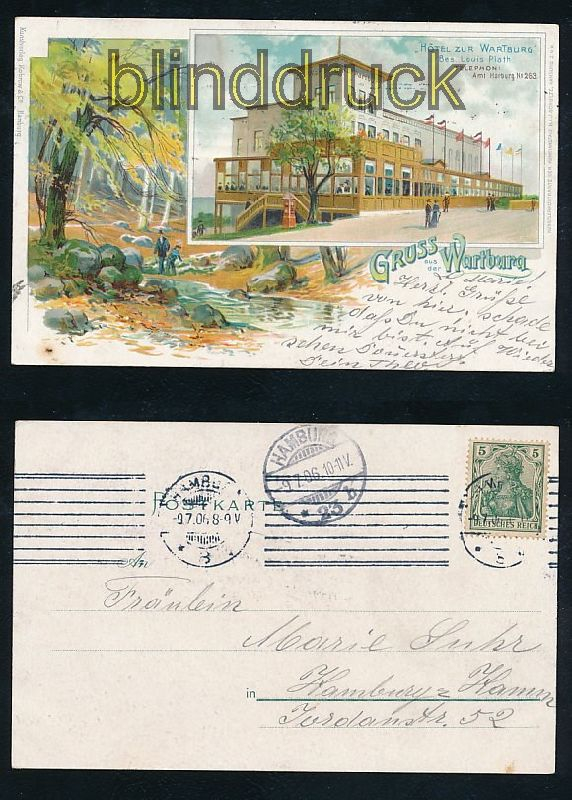 blinddruck
„HÔTEL ZUR WARTBURG“
Bes. Louis Plath
TELEPHON:
Amt Harburg No 263.
GRUSS
aus
der
Wartburg
L. Marie!
Herzl. Grüße
von hier, schade
daß Du nicht bei
mir bist. Auf Wieder
sehen
Dein Theo
HAMBURG
9.7.06.10-11V.
* 23 b
HAMBURG
9.7.06.8-9V
* 3
POSTKARTE
5 5
DEUTSCHES REICH
An
Fräulein
Marie Suhr
in Hamburg-Hamm
Jordanstr. 52